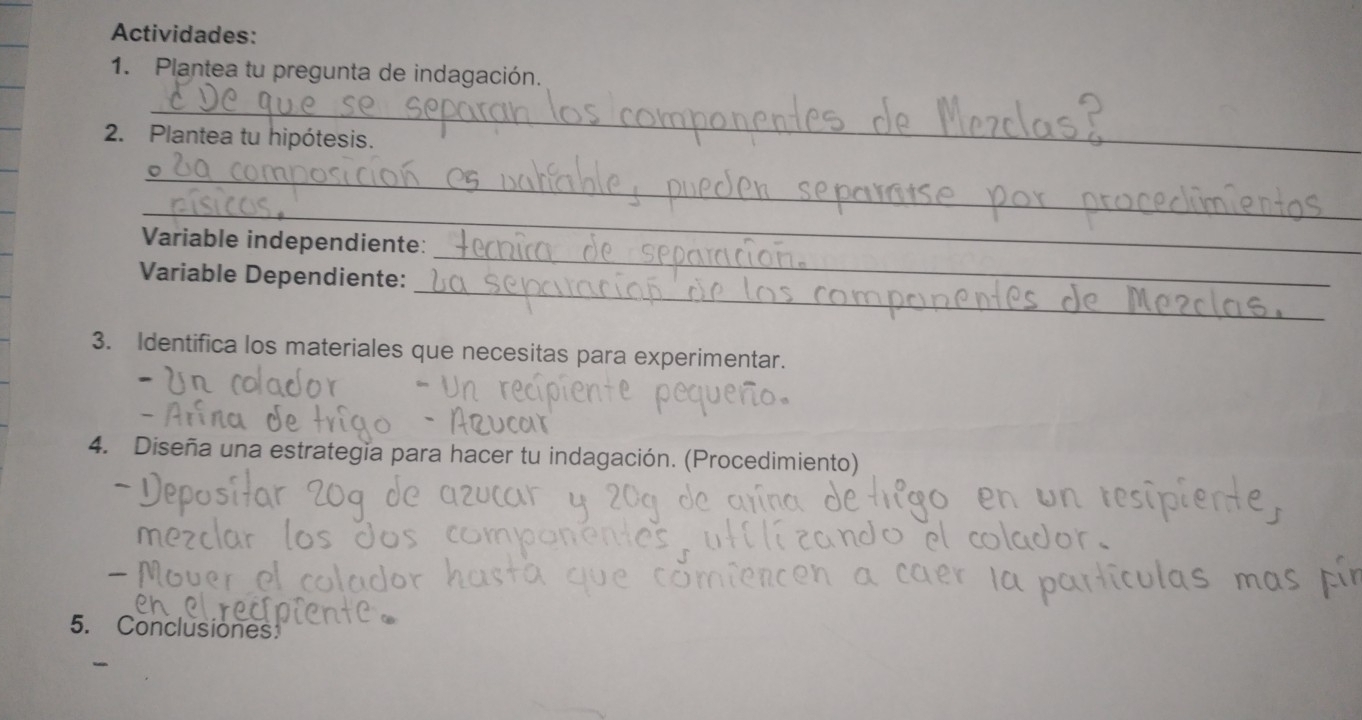 Actividades:
1. Plantea tu pregunta de indagación.
¿De que se separan los componentes de Mezclas?
2. Plantea tu hipótesis.
La composición es variable, pueden separarse por procedimientos
físicos.
Variable independiente: tecnica de separacion.
Variable Dependiente: La separación de los componentes de Mezclas.
3. Identifica los materiales que necesitas para experimentar.
- Un colador - Un recipiente pequeño.
- Arina de trigo - Azucar
4. Diseña una estrategia para hacer tu indagación. (Procedimiento)
- Depositar 20g de azucar y 20g de arina de trigo en un resipiente,
mezclar los dos componentes, utilizando el colador.
- Mover el colador hasta que comiencen a caer la particulas mas fin
en el recipiente.
5. Conclusiones:
-